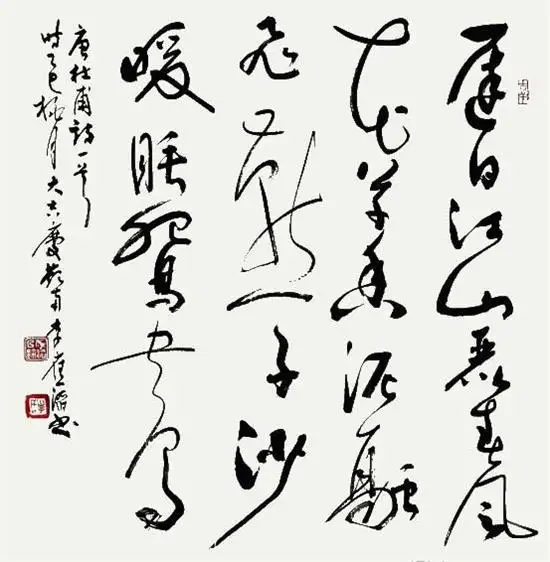 遲日江山麗春風
花草香泥融
飛燕子沙
暖睡鴛鴦
唐杜甫詩一首
時乙巳月大李書